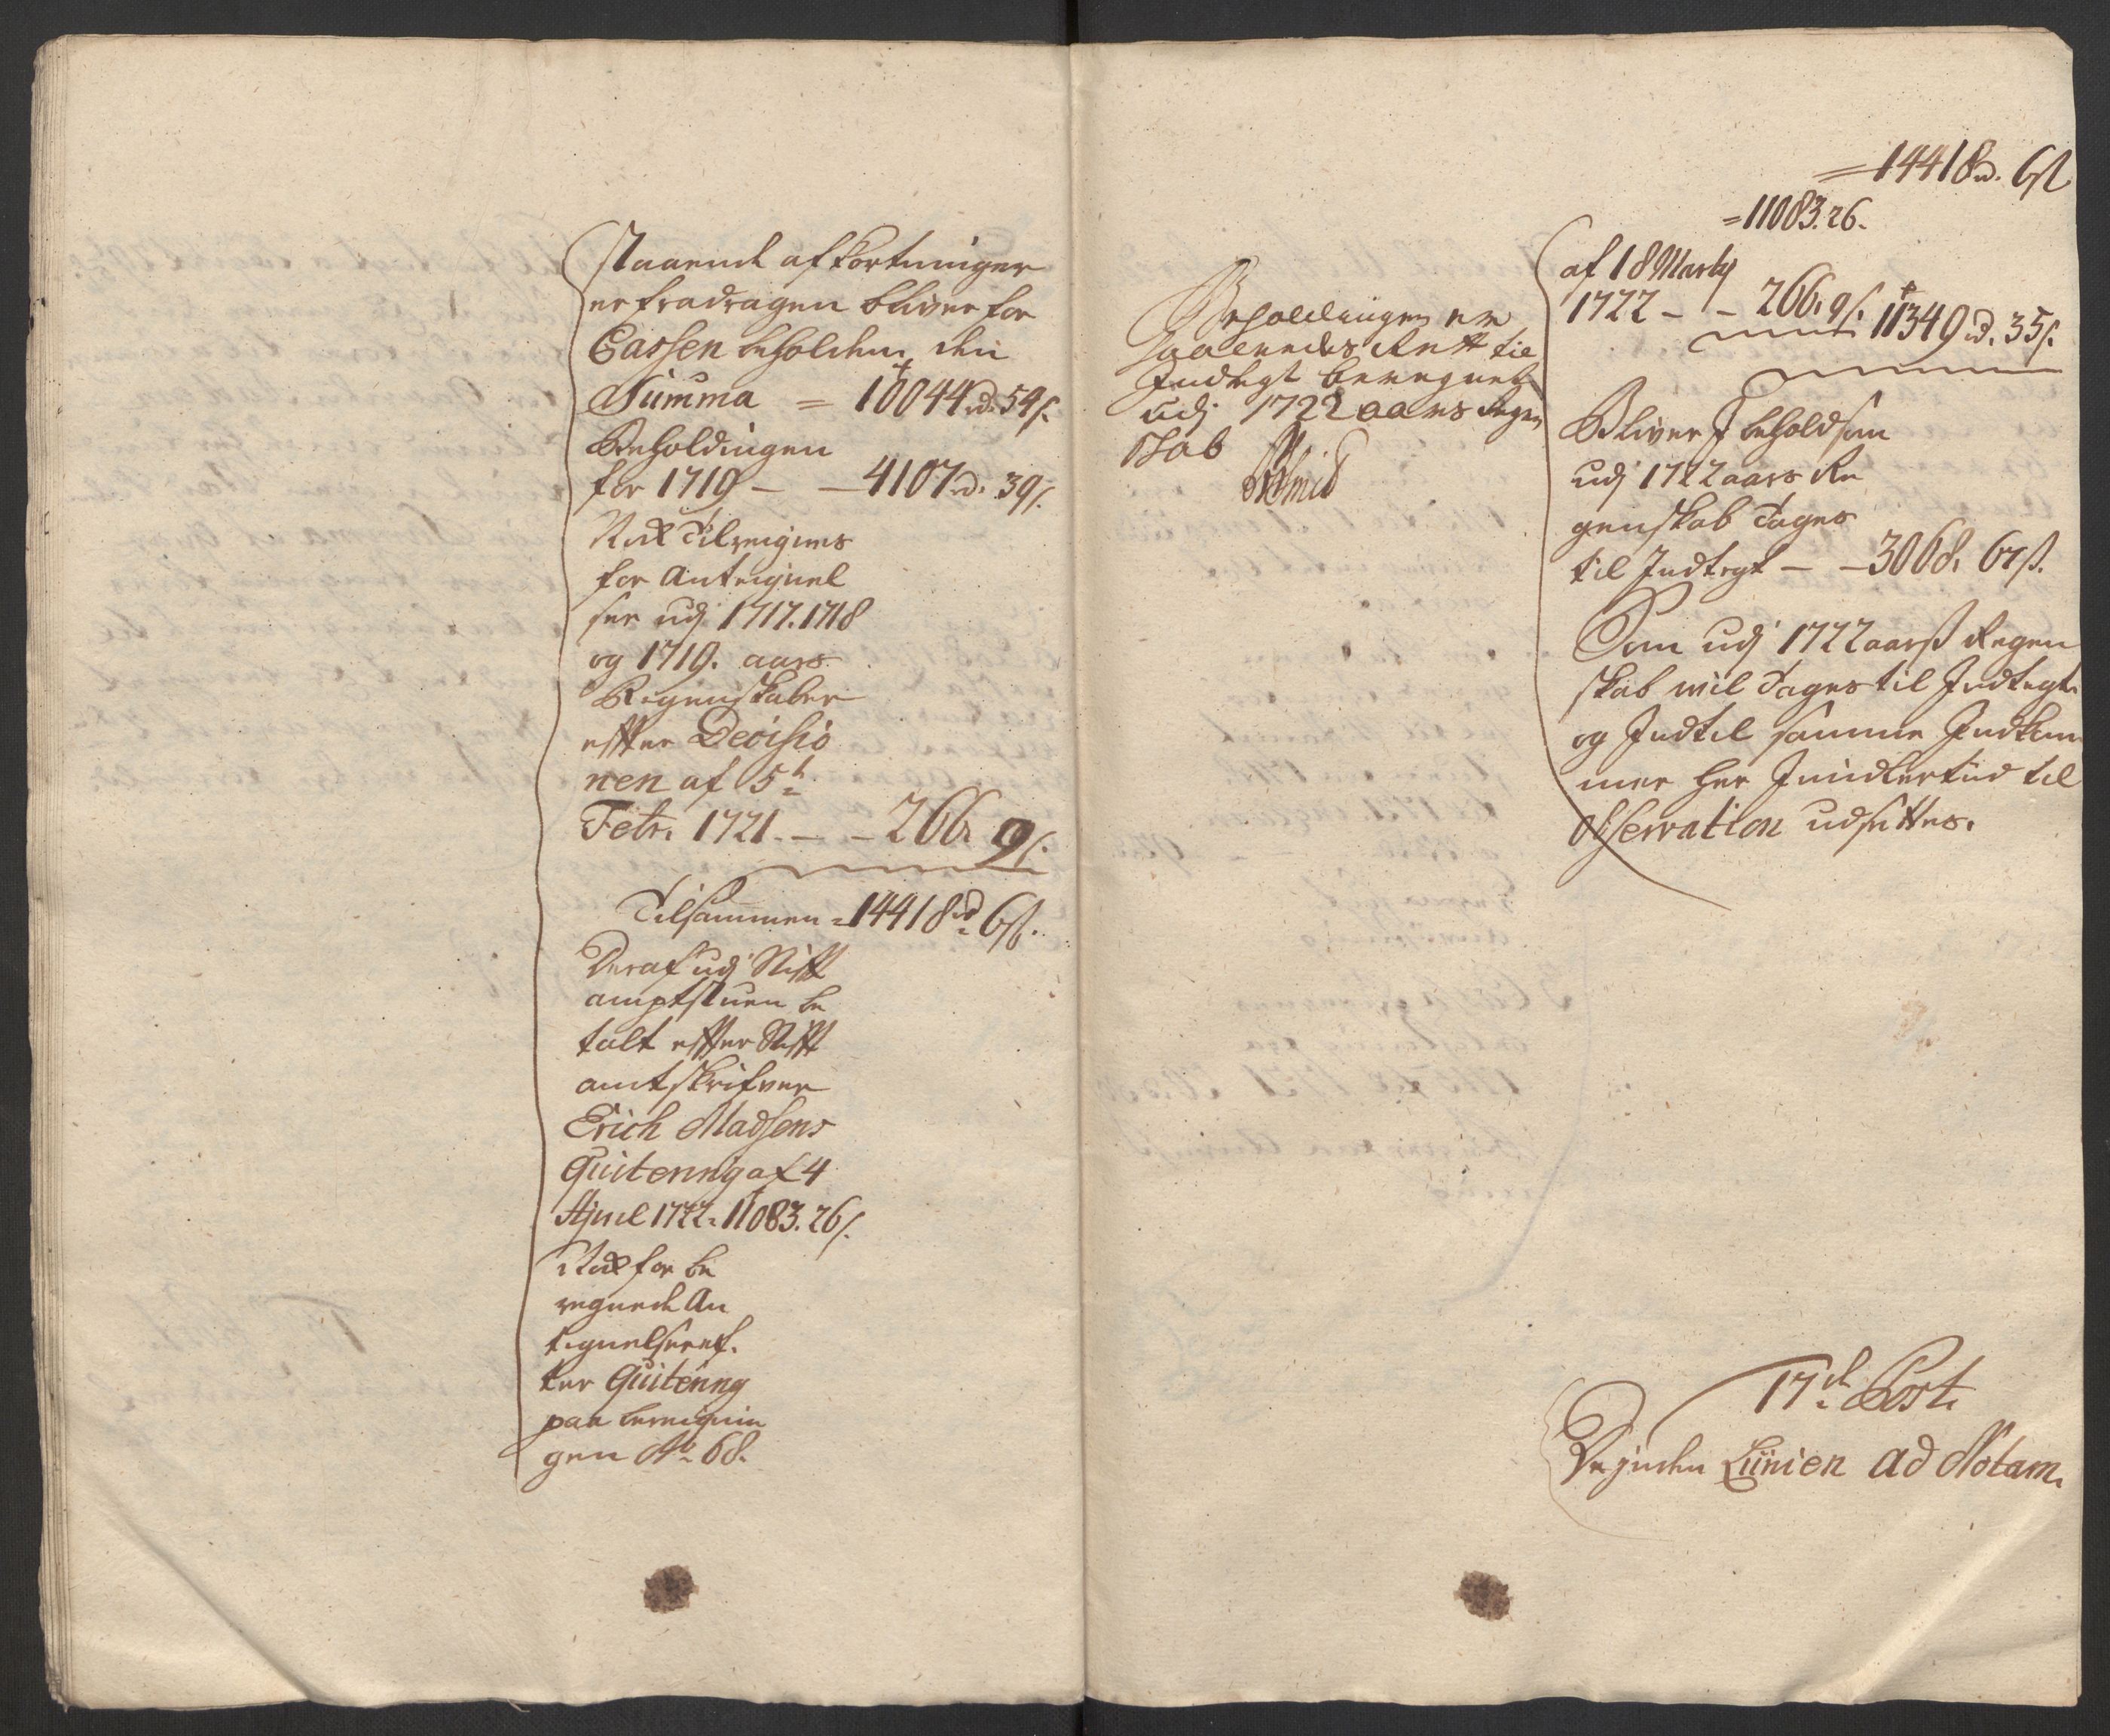 staaende afkortninger
er fradragen bliver for
Cassen beholden, den
Summa = 10044 rd. 54 s.
Beholdingen
for 1719 – – 4107 rd. 39 s.
Nok Tilreignes
for Anteignel
ser udj 1717. 1718
og 1719. aars
Regenskaber
effter Decisio
nen af 5te
Febr. 1721. – – 266. 9 s.
Tilsammen = 14418 rd 6 s.
Deraf udj Stifft
amptstuen be
talt effter Stifft
amtskrifver
Erich Madsens
Quitering af 4
April 1722 = 11083. 26 s.
Nok for be
regnede An
tegnelser ef-
ter Quitering
paa bereignin
gen No 68.
Beholdingen er
saaledes Rett til
Indtegt beregnet
udj 1722 aars Regen
skab
= 14418 rd. 6 s
= 11083. 26.
af 18 Marty
1722 – – 266. 9 s. 11349 rd. 35 s.
Bliver J behold som
udj 1722 aars Re
genskab Tages
til Indtegt – – 3068. 67 s.
Som udj 1722 aars Regen
skab wil Tages til Indtegt
og Indtil samme Indkom
mer her Jmidlertid til
Observation udsettes.
17de Post.
Vejnden Liinien ad Notam.